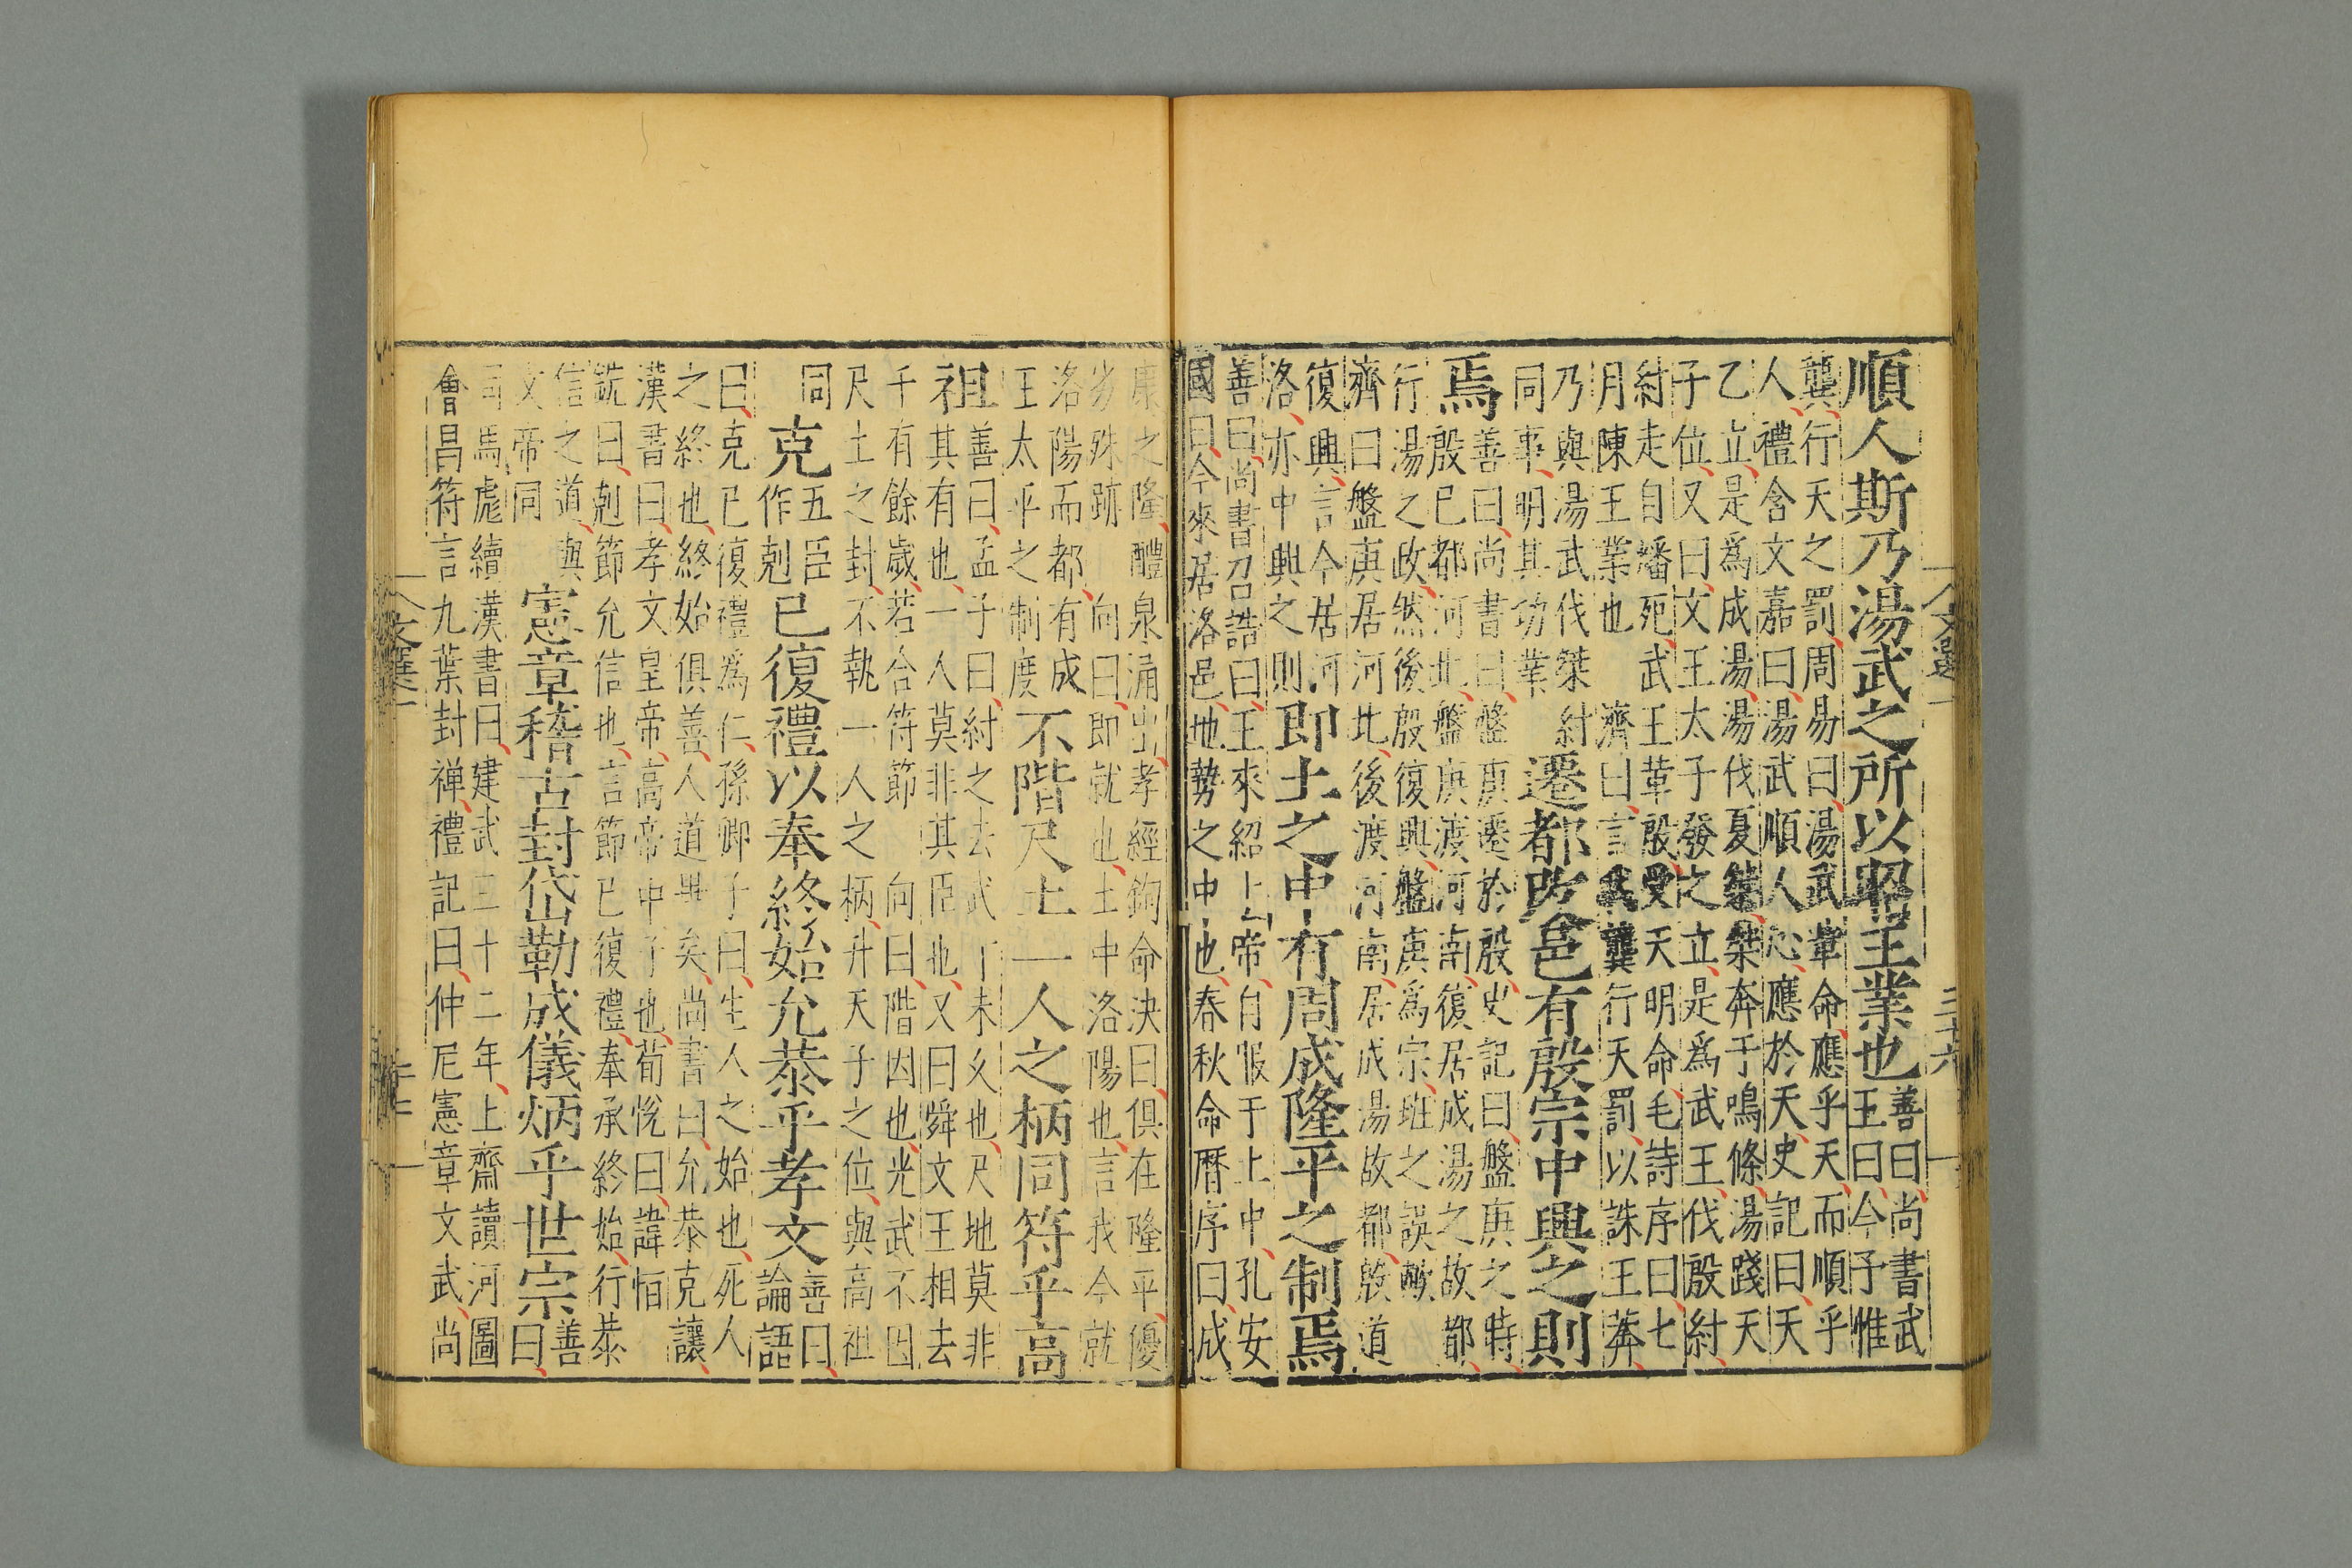 順人斯乃湯武之所以昭王業也善曰尚書武
王曰今予惟
龔行天之罰周易曰湯武革命應乎天而順乎
人禮含文嘉曰湯武順人心應於天史記曰天
乙立是爲成湯湯伐夏桀桀奔于鳴條湯踐天
子位又曰文王太子發之立是爲武王伐殷紂
紂走自燔死武王革殷受天明命毛詩序曰七
月陳王業也 濟曰言武龔行天罰以誅王莽
乃與湯武伐桀紂
同事明其功業
遷都改邑有殷宗中興之則
焉善曰尚書曰盤庚遷於殷史記曰盤庚之時
殷已都河北盤庚渡河南復居成湯之故都
行湯之政然後殷復興盤庚爲宗班之誤歟
濟曰盤庚居河北後渡河南居成湯故都殷道
復興言今居河
洛亦中興之則
即土之中有周成隆平之制焉
善曰尚書召誥曰王來紹上帝自服于土中孔安
國曰今來居洛邑地勢之中也春秋命曆序曰成
文選一 三十六
康之隆醴泉涌出孝經鉤命決曰俱在隆平優
劣殊跡 向曰即就也土中洛陽也言我今就
洛陽而都有成
王太平之制度
不階尺土一人之柄同符乎高
祖善曰孟子曰紂之去武丁未久也尺地莫非
其有也一人莫非其臣也又曰舜文王相去
千有餘歲若合符節 向曰階因也光武不因
尺土之封不執一人之柄升天子之位與高祖
同
克五臣
作剋
己復禮以奉終始允恭乎孝文善曰
論語
曰克己復禮爲仁孫卿子曰生人之始也死人
之終也終始俱善人道畢矣尚書曰允恭克讓
漢書曰孝文皇帝高帝中子也荀悅曰諱恒
銑曰剋節允信也言節己復禮奉承終始行恭
信之道與
文帝同
憲章稽古封岱勒成儀炳乎世宗善
曰
司馬彪續漢書曰建武三十二年上齋讀河圖
會昌符言九葉封禪禮記曰仲尼憲章文武尚
文選一